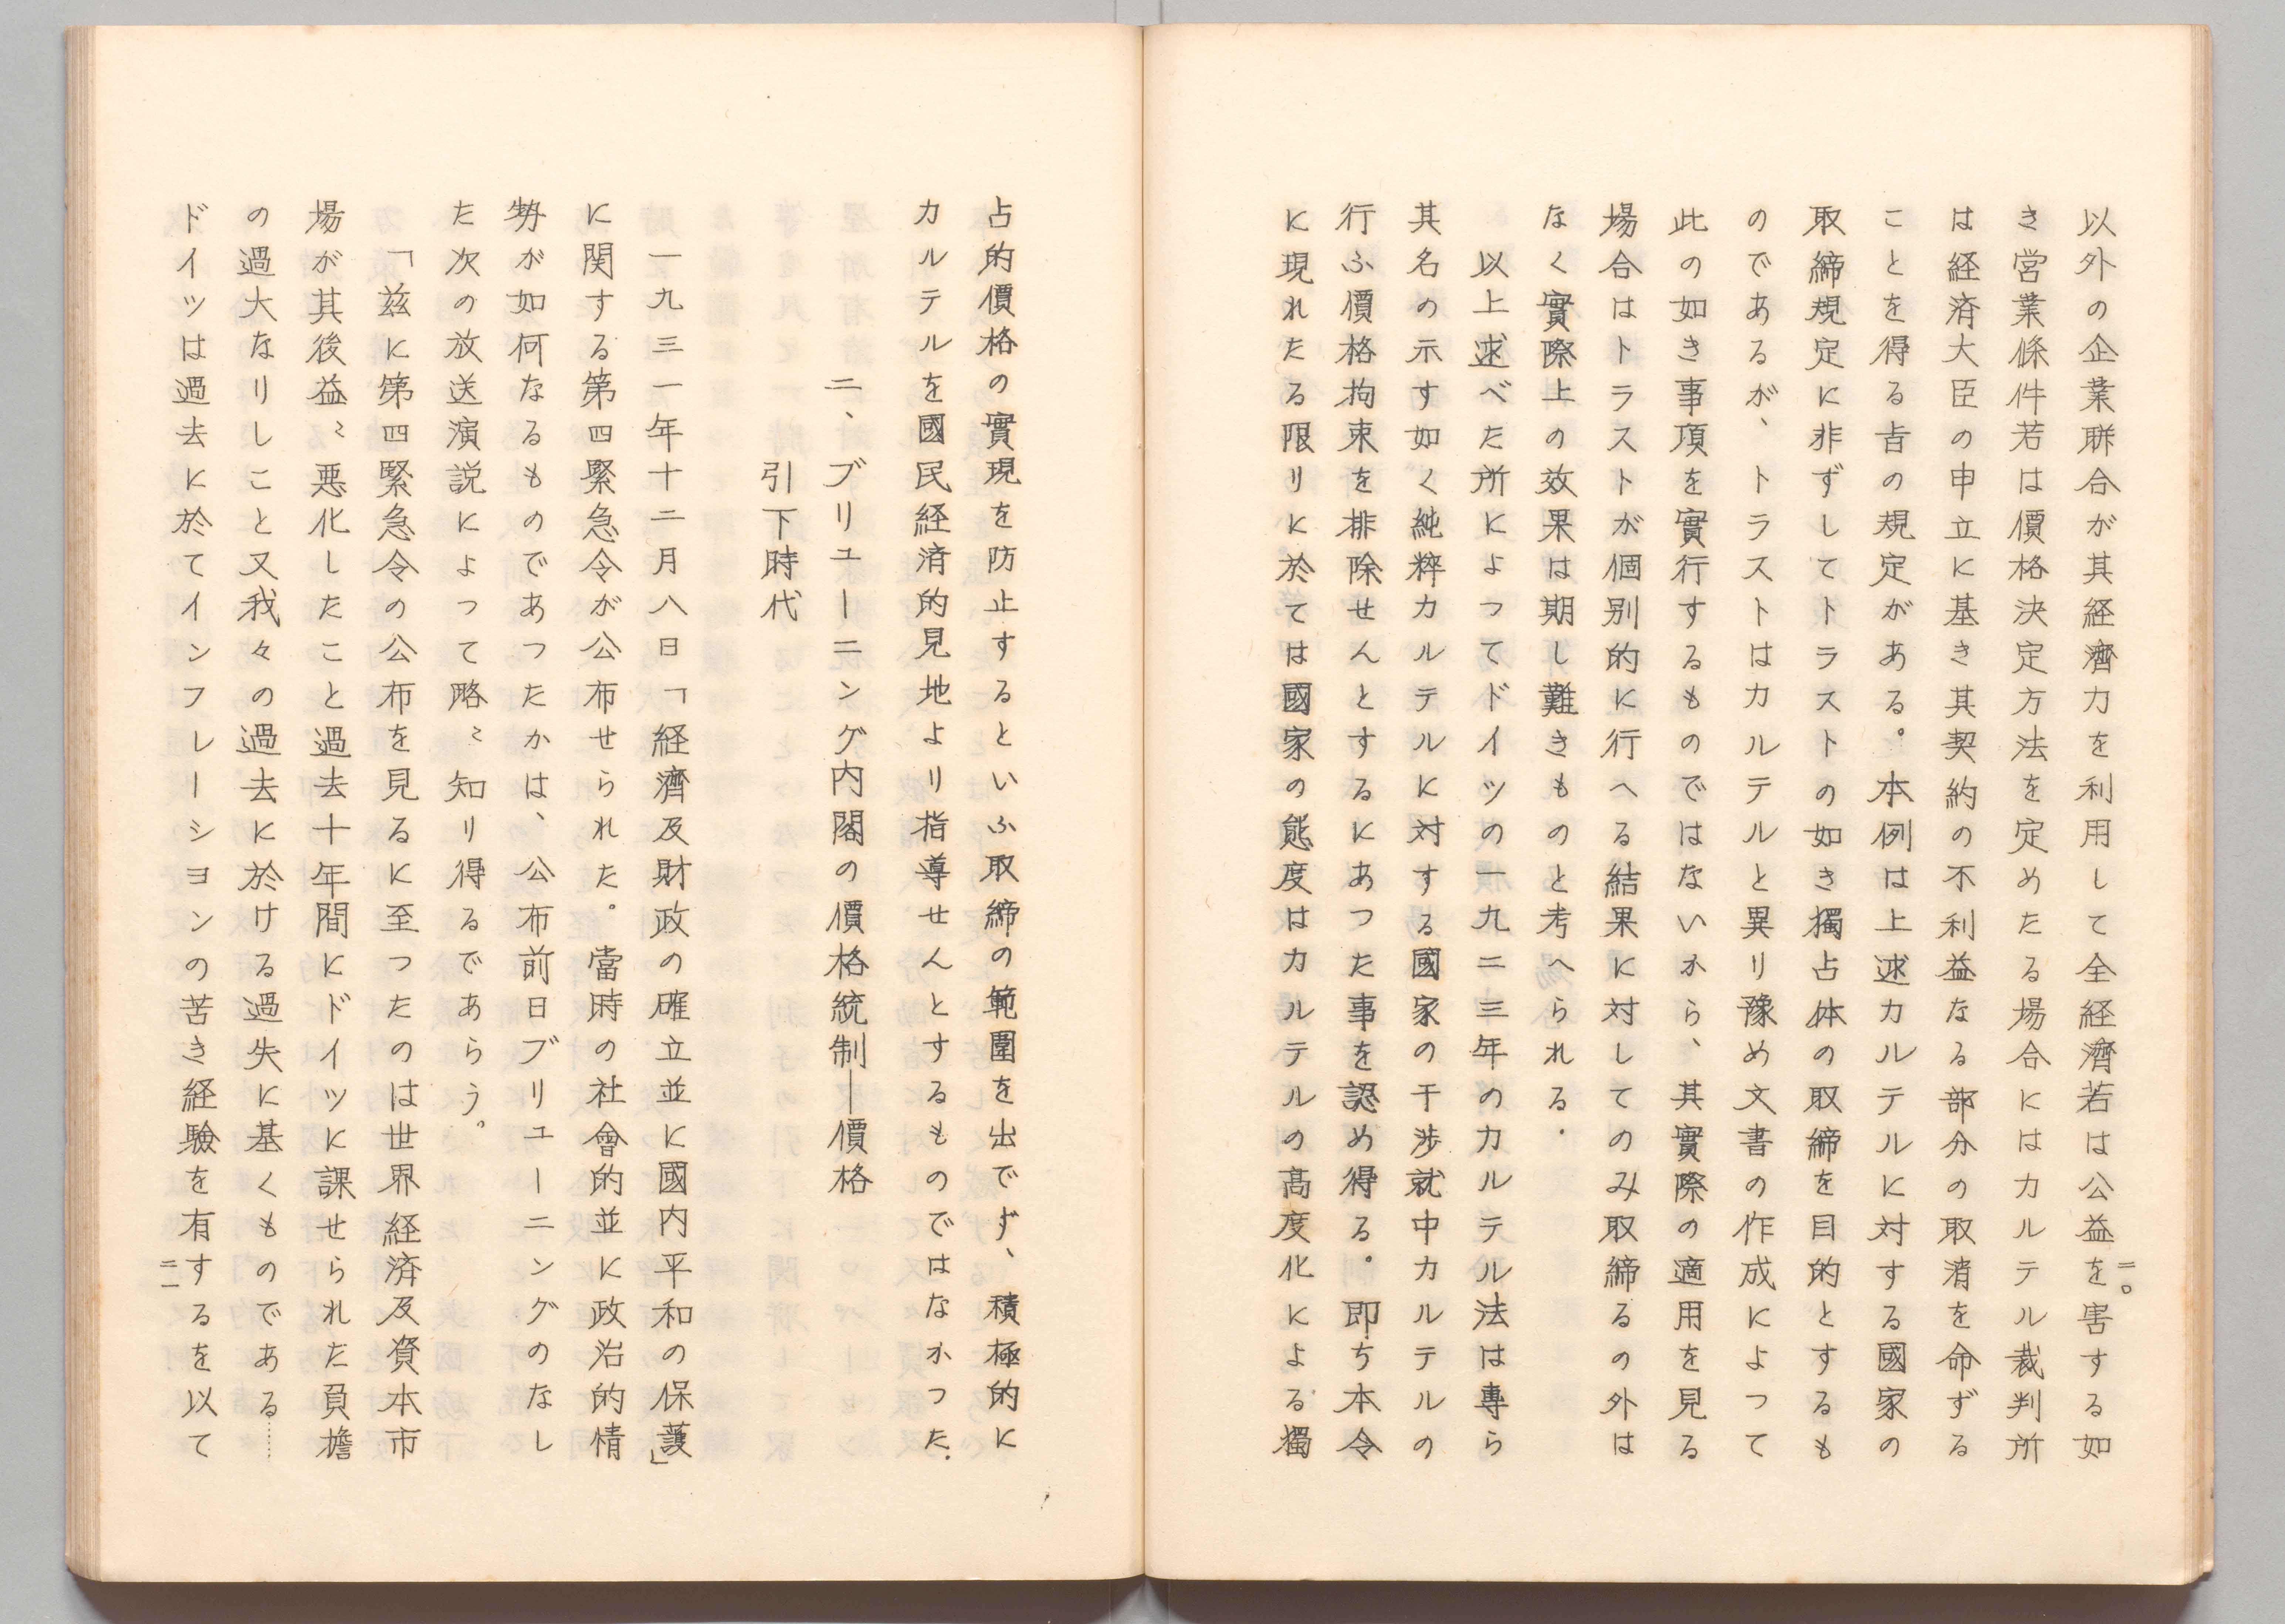 以外の企業聯合が其経濟力を利用して全経濟若は公益を害する如
き営業條件若は價格決定方法を定めたる場合にはカルテル裁判所
は経済大臣の申立に基き其契約の不利益なる部分の取消を命ずる
ことを得る旨の規定がある。本例は上述カルテルに対する國家の
取締規定に非ずしてトラストの如き獨占体の取締を目的とするも
のであるが、トラストはカルテルと異り豫め文書の作成によつて
此の如き事項を實行するものではないから、其實際の適用を見る
場合はトラストが個別的に行へる結果に対してのみ取締るの外は
なく實際上の效果は期し難きものと考へられる.
以上述べた所によつてドイツの一九二三年のカルテル法は專ら
其名の示す如く純粹カルテルに対する國家の干渉就中カルテルの
行ふ價格拘束を排除せんとするにあつた事を認め得る。即ち本令
に現れたる限りに於ては國家の態度はカルテルの高度化による獨
二〇
占的價格の實現を防止するといふ取締の範圍を出でず、積極的に
カルテルを國民経済的見地より指導せんとするものではなかつた.
二、ブリユーニング内閣の價格統制―價格
引下時代
一九三一年十二月八日「経濟及財政の確立並に國内平和の保護」
に関する第四緊急令が公布せられた。當時の社會的並に政治的情
勢が如何なるものであつたかは、公布前日ブリユーニングのなし
た次の放送演説によつて略〻知り得るであらう。
「茲に第四緊急令の公布を見るに至つたのは世界経済及資本市
場が其後益〻悪化したこと過去十年間にドイツに課せられた負擔
の過大なりしこと又我々の過去に於ける過失に基くものである……
ドイツは過去に於てインフレーシヨンの苦き経驗を有するを以て
二一